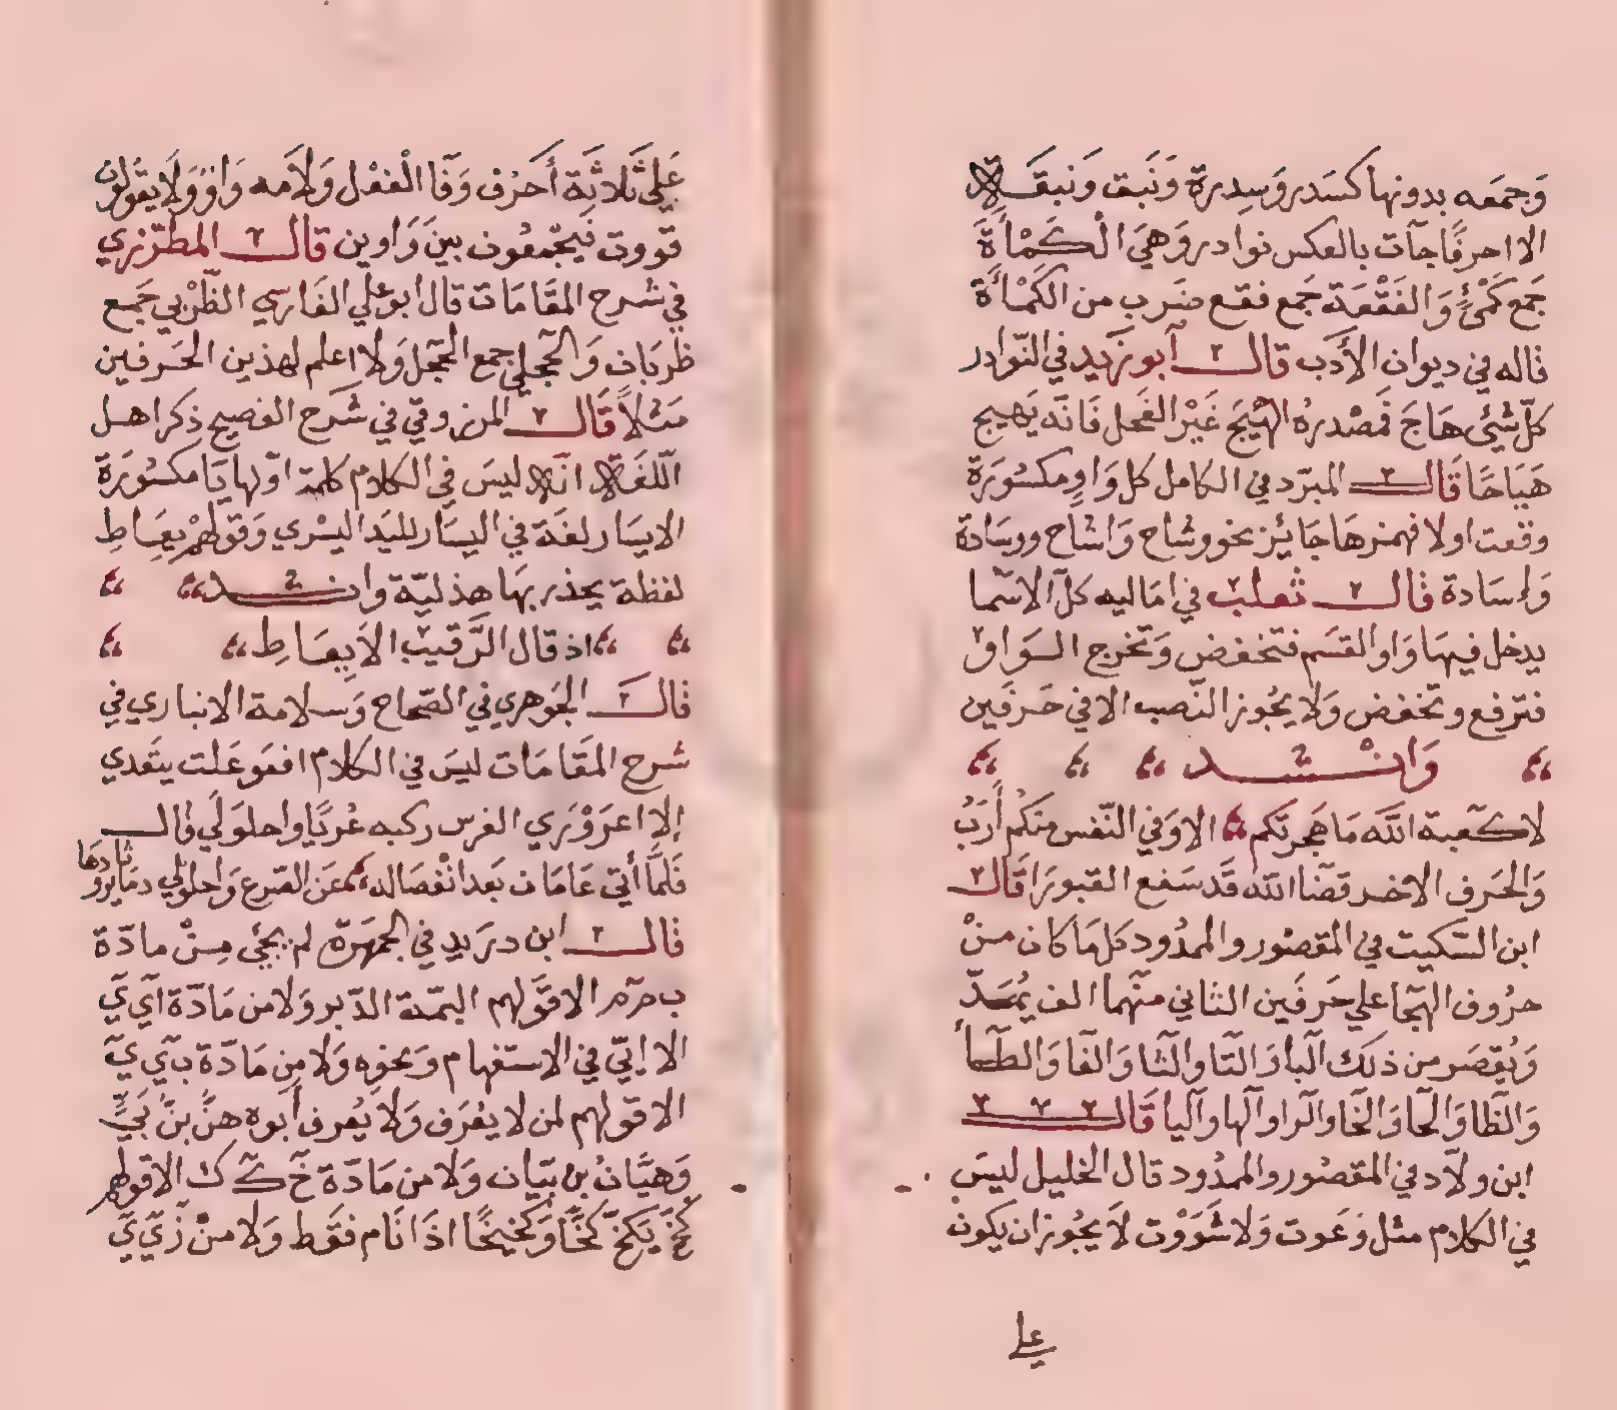 وَجمَعه بدونها كسَدر وَسِدرة وَنَبق وَنبقَة
الا احرفًا جآت بالعكس نوادر وَهيَ الْكَمْأَة
جَمع كَمْئٍ وَالفَقْعَة جَمع فقع ضَرب من الكَمْأَة
قاله في ديوان الأَدَب قال أبو زَيد في النّوادر
كلّ شئ هَاجَ فمَصْدرهُ الهَيْجَ غَيْر الفَحل فَانّه يَهيج
هَيَاجًا قَال المبرّد في الكامل كل وَاوٍ مكسُورَة
وقعت اولا فهمزهَا جَائِز نحو وشاح وَاشاح ووسَادة
وَاسَادة قال ثعلب في امَاليه كلّ الاسمَا
يدخل فيهَا وَاو القسَم فتخفض وَتخرج الوَاو
فترفع وتخفض وَلا يجُوز النّصب الا في حَرفَين
وَانْشد
لا كعبة اللّه مَا هَجرتكم الا وَفي النّفس منكم أَرَبُ
وَالحَرف الاخر قضَا اللّه قَد سَفع القبورَا قَال
ابن السّكيت في المقصُور والممدُود كل مَا كان منْ
حرُوف الهجَا علي حَرفَين الثاني منهما الف يُمَدّ
وَيُقصَر من ذلك البا وَالتا والثا وَالفا وَالطا
وَالظا وَالحا وَالخا والرا والها واليا قَال
ابن ولاّد في المقصُور والممدُود قال الخليل ليسَ
في الكلام مثل وَعَوت وَلا شَوَوْت لاَ يجُوز ان يكون
علي
عَلي ثَلاثَة أَحرُف وَفَا الْفعْل وَلاَمه وَاوٌ وَلاَ يقُولون
قووت فيجتمعُون بينَ وَاوين قال المطرّزي
في شرح المقَامَات قال ابو علي الفَارسي الظّرْبي جَمع
ظرِبَان وَالحجلي جمع الحجَل وَلا اعلم لهذين الحَرفين
مَثلاً قَال المرزوقي في شَرح الفصيح ذكر اهل
اللّغَة انّه ليسَ في الكلام كلمة اوّلها يَا مكسُورَة
الا يسَار لغَة في اليسَار لليَد اليسْري وَقولهمْ يِعَاطِ
لفظة يحذر بهَا هذليّة وانشد
اذ قال الرَّقيبُ الاَ يِعَاطِ
قال الجَوهري في الصّحاح وَسلامة الانباري في
شرح المقَامَات ليسَ في الكلام افعَوعَلت يتَعَدي
إلا اعرَوْرَي الفرس ركبه عُريًا واحلولَي قال
فَلمَّا أتى عَامَان بَعد انْفصَاله عَن الضرع وَاحلولي دمَاثا يرودهَا
قال ابن درَيدِ في الجمهَرَة لم يجئ مِنْ مادّة
ب م م الا قَولهم البمّة الدّبر وَلا من مَادّة أ ي ي
الا ايّ في الاستفهام وَنحوه وَلا مِن مَادّة ب ي ي
الا قولهم لمن لا يعْرَف وَلا يُعرف أَبوه هىُّ بنُ بَيٍّ
وَهيَّانُ بن بيّان وَلا من مَادّة خ ك ك الا قولهم
كَخَّ يَكخّ كَخًّا وَكخيخًا اذَا نَام فغَط وَلا منْ ز ي ي